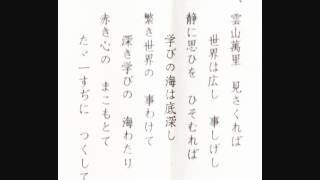 雲山萬里 見さくれば
世界は広し 事しげし
静に思ひを ひそむれば
学びの海は底深し
繁き世界の 事わけて
深き学びの 海わたり
赤き心の まこもとて
たゞ一すぢに つくして